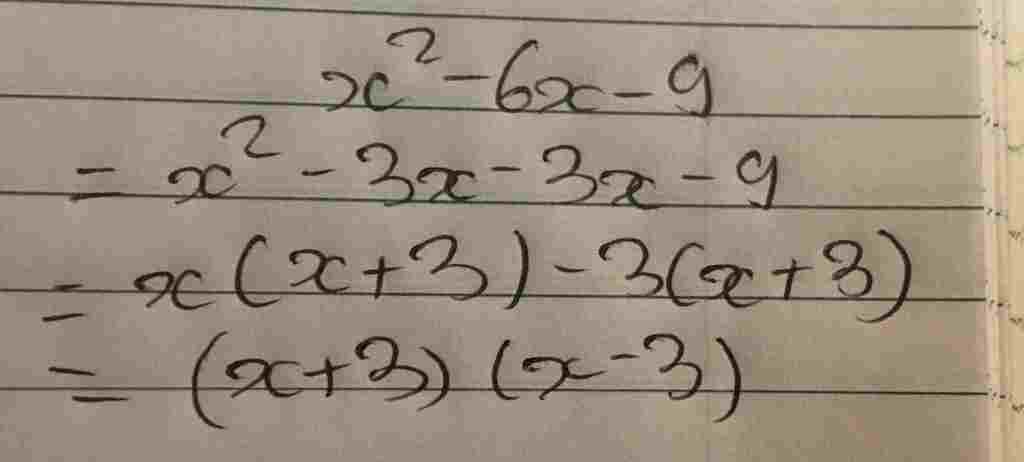 x² - 6x - 9
= x² - 3x - 3x - 9
= x(x+3) - 3(x+3)
= (x+3) (x-3)